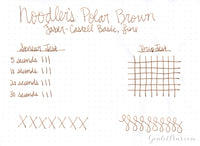 Noodler's Polar Brown
Faber-Castell Basic, Fine
Smear Test
Drip Test
5 seconds
10 seconds
20 seconds
30 seconds
XXXXXXX